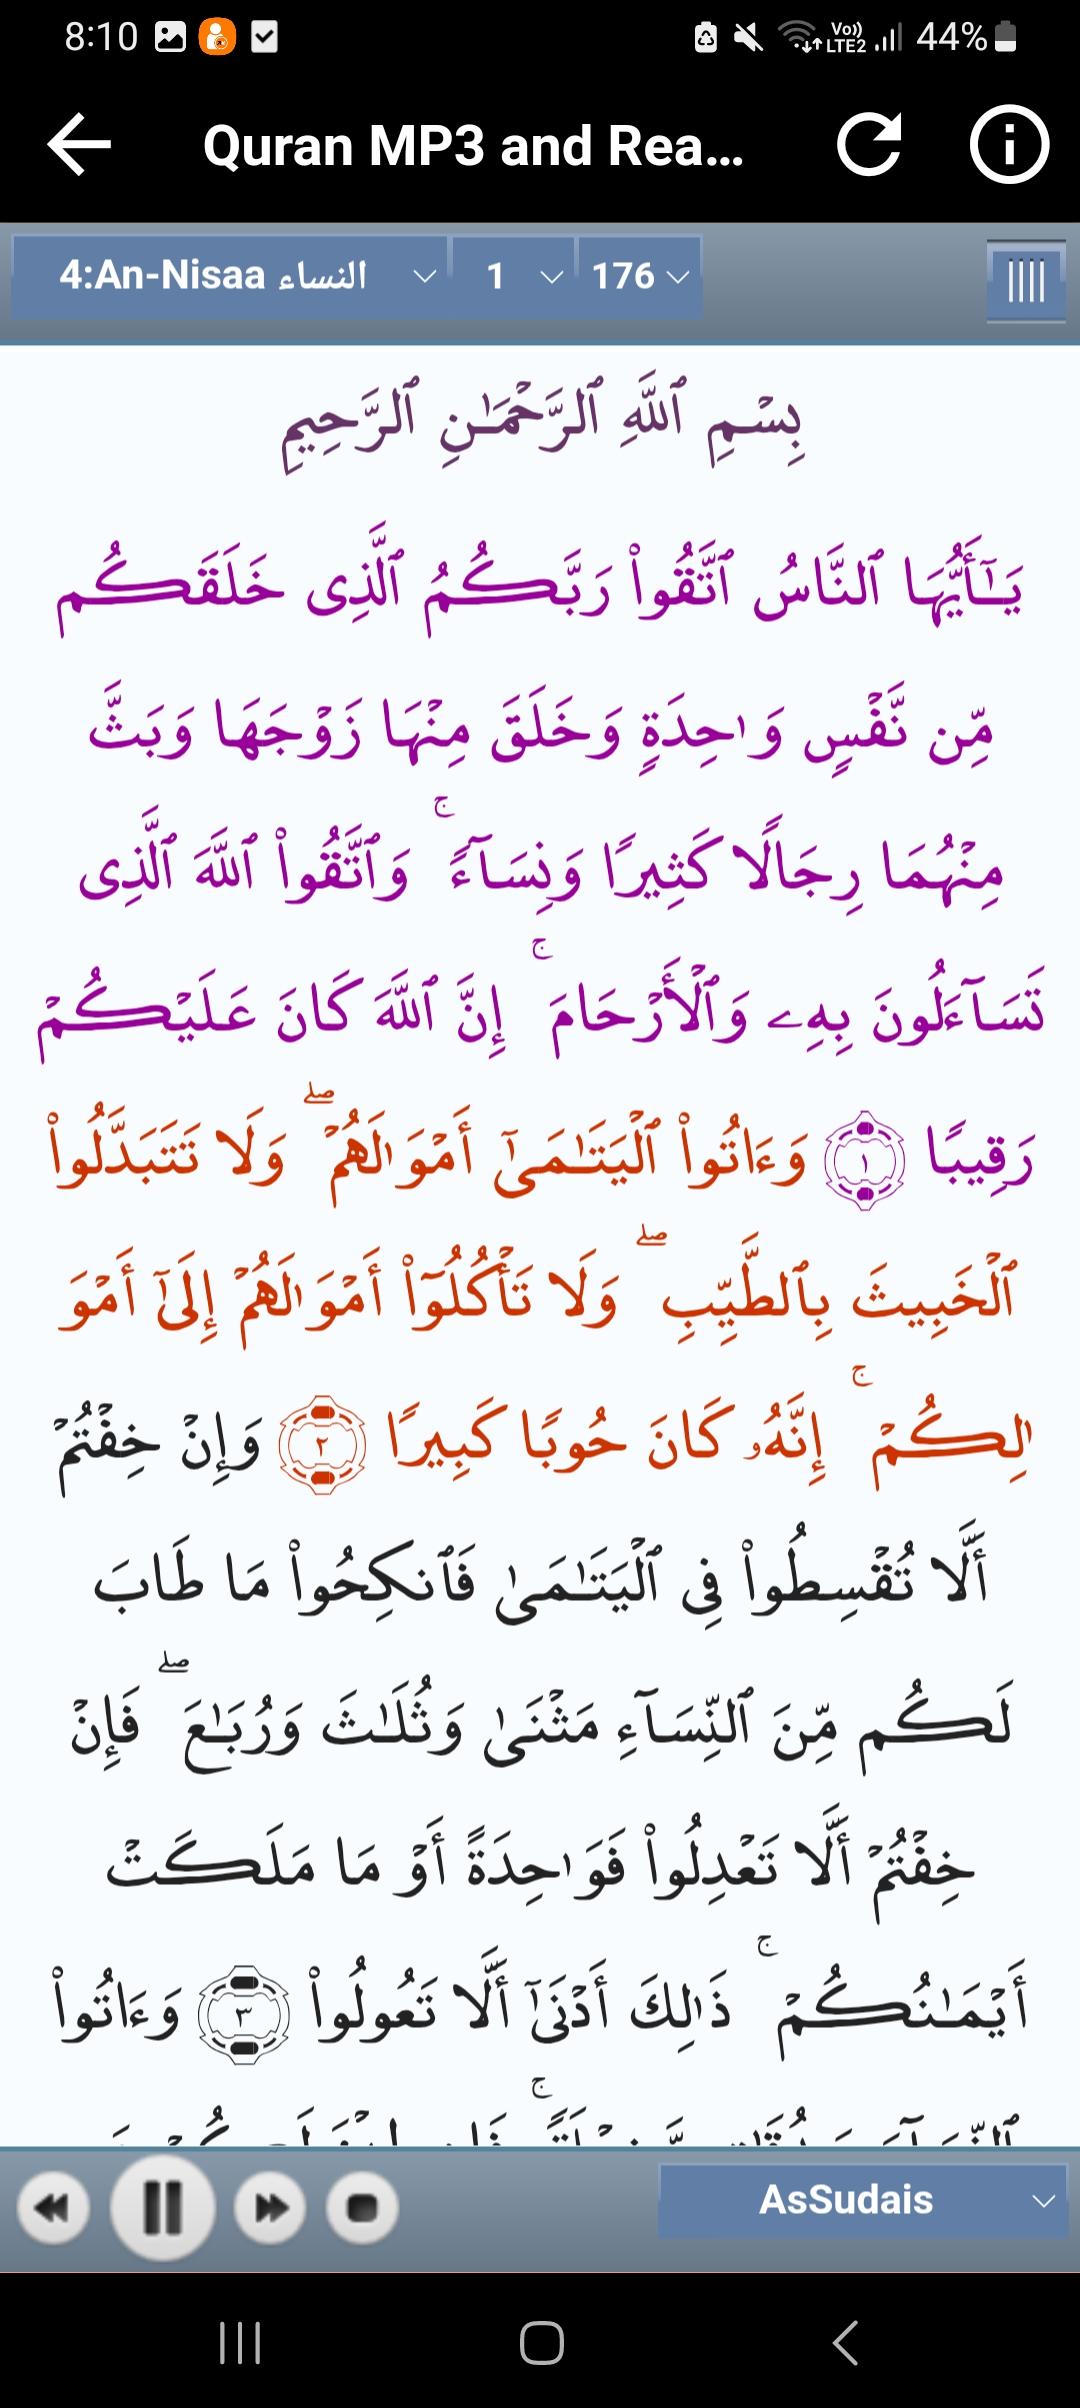 8:10
Vo)) LTE2 44%
Quran MP3 and Rea...
4:An-Nisaa النساء 1 176
بِسْمِ ٱللَّهِ ٱلرَّحْمَـٰنِ ٱلرَّحِيمِ
يَـٰٓأَيُّهَا ٱلنَّاسُ ٱتَّقُوا۟ رَبَّكُمُ ٱلَّذِى خَلَقَكُم
مِّن نَّفْسٍ وَٰحِدَةٍ وَخَلَقَ مِنْهَا زَوْجَهَا وَبَثَّ
مِنْهُمَا رِجَالًا كَثِيرًا وَنِسَآءً ۚ وَٱتَّقُوا۟ ٱللَّهَ ٱلَّذِى
تَسَآءَلُونَ بِهِۦ وَٱلْأَرْحَامَ ۚ إِنَّ ٱللَّهَ كَانَ عَلَيْكُمْ
رَقِيبًا ١ وَءَاتُوا۟ ٱلْيَتَـٰمَىٰٓ أَمْوَٰلَهُمْ ۖ وَلَا تَتَبَدَّلُوا۟
ٱلْخَبِيثَ بِٱلطَّيِّبِ ۖ وَلَا تَأْكُلُوٓا۟ أَمْوَٰلَهُمْ إِلَىٰٓ أَمْوَ
ٰلِكُمْ ۚ إِنَّهُۥ كَانَ حُوبًا كَبِيرًا ٢ وَإِنْ خِفْتُمْ
أَلَّا تُقْسِطُوا۟ فِى ٱلْيَتَـٰمَىٰ فَٱنكِحُوا۟ مَا طَابَ
لَكُم مِّنَ ٱلنِّسَآءِ مَثْنَىٰ وَثُلَـٰثَ وَرُبَـٰعَ ۖ فَإِنْ
خِفْتُمْ أَلَّا تَعْدِلُوا۟ فَوَٰحِدَةً أَوْ مَا مَلَكَتْ
أَيْمَـٰنُكُمْ ۚ ذَٰلِكَ أَدْنَىٰٓ أَلَّا تَعُولُوا۟ ٣ وَءَاتُوا۟
AsSudais